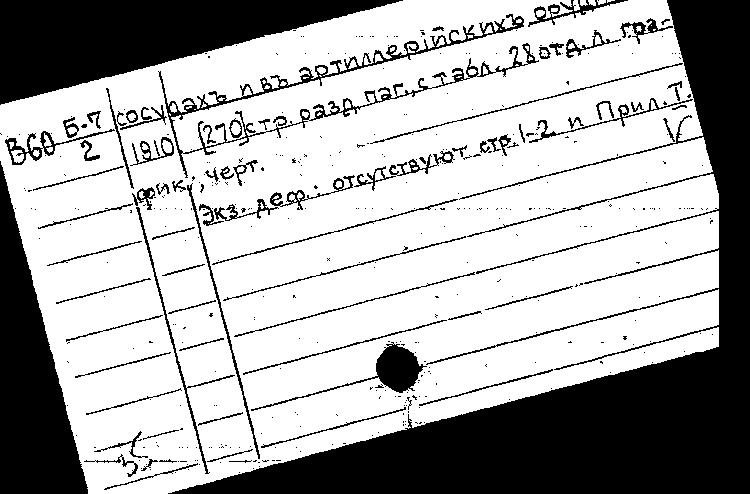 сосудахъ и въ артиллерійскихъ
В60 Б-7 1910 [270] стр. разд. паг., с табл., 28 отд. л. гра-
2 фик., черт.
Экз. деф.: отсутствуют стр. 1-2 и Прил. I.
V
35